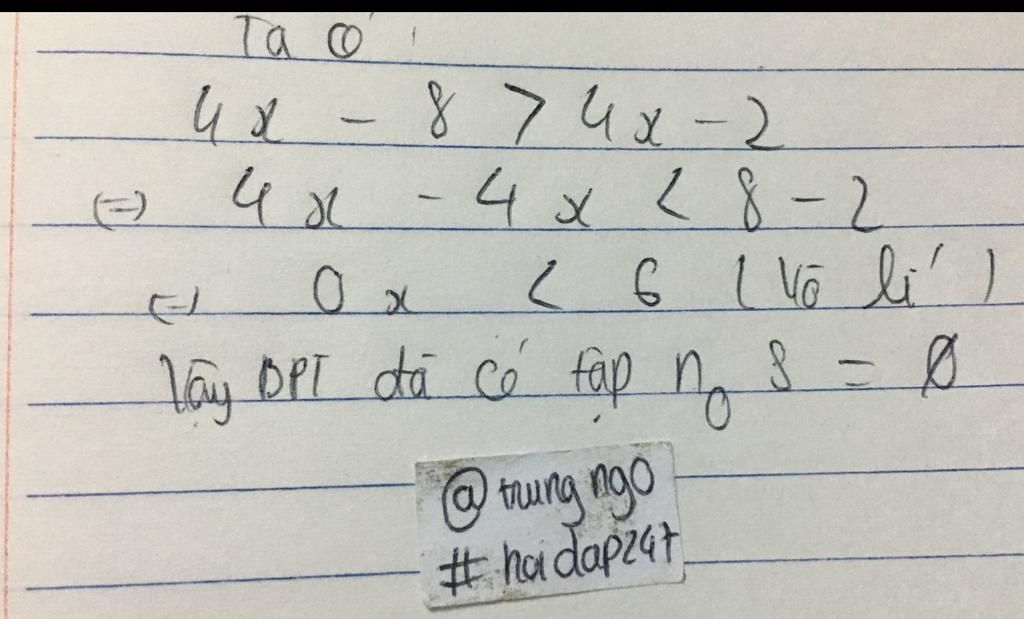 Ta có:
4x - 8 > 4x - 2
(=) 4x - 4x < 8 - 2
(=) 0x < 6 (Vô lí)
Vậy BPT đã có tập n0 S = Ø
@trung ngo
# hoidap247